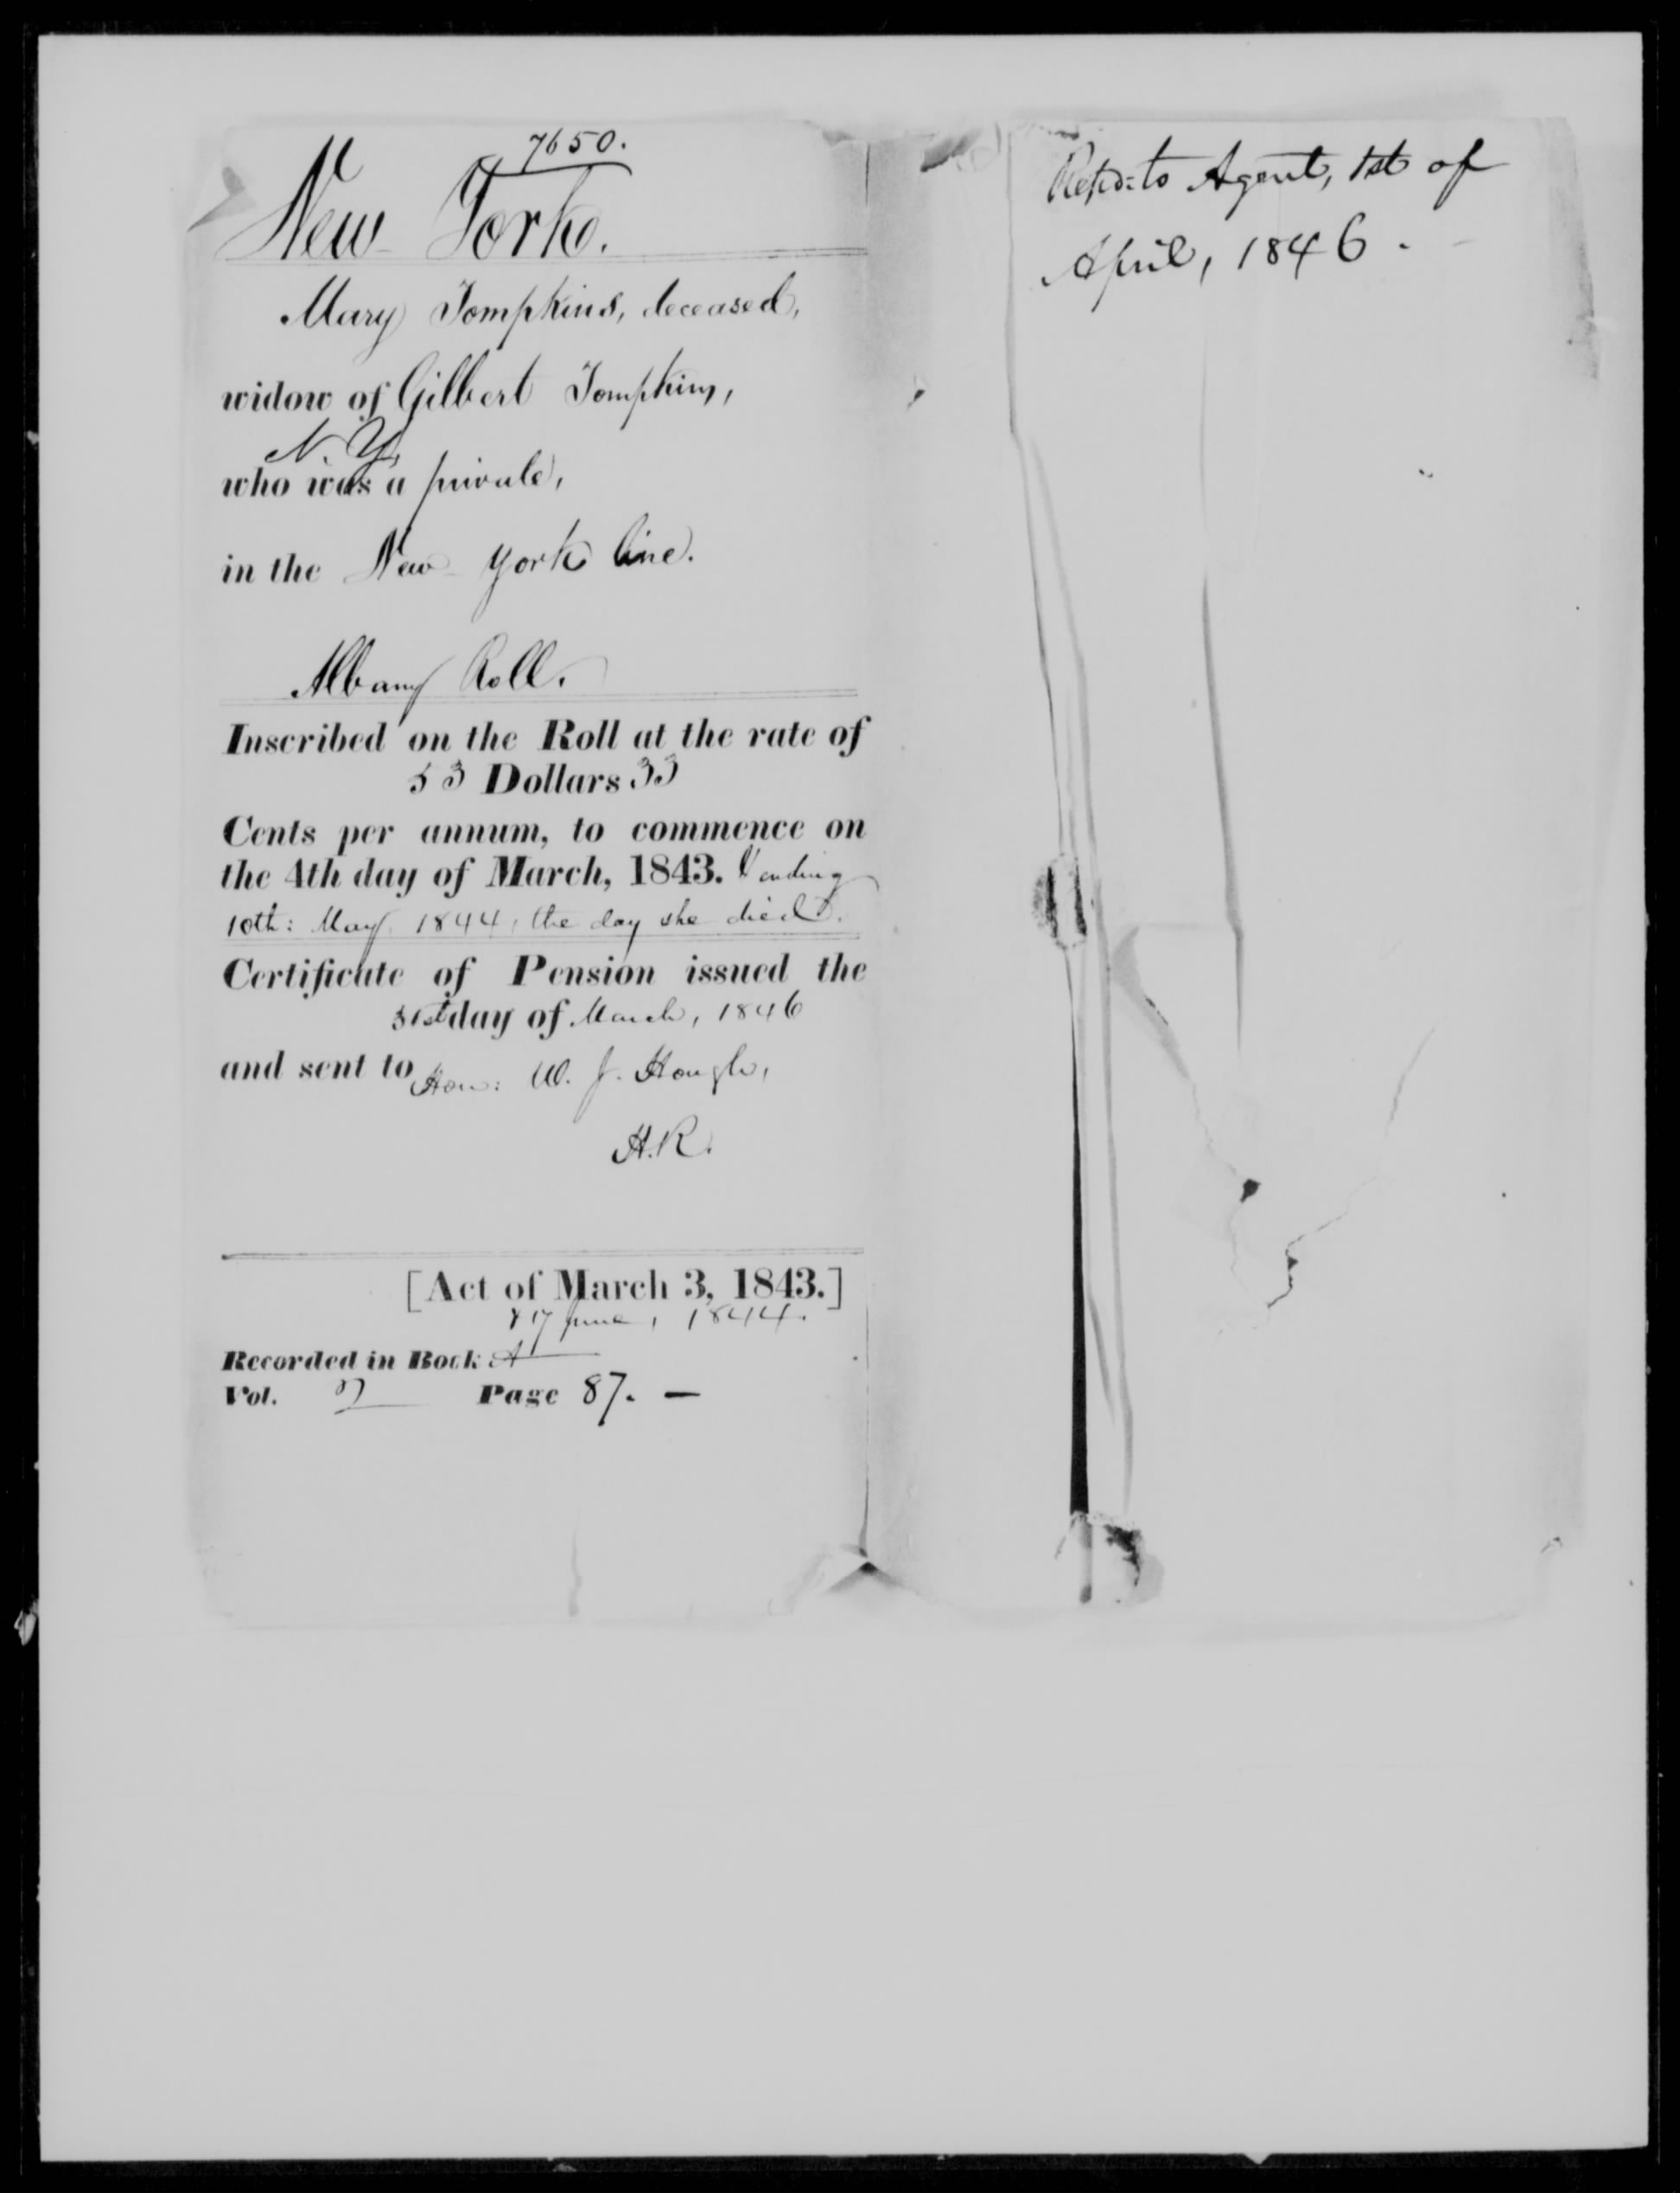 7650.
New York.
Mary Tompkins, deceased,
widow of Gilbert Tompkins,
N. Y.
who was a private,
in the New York line.
Albany Roll.
Inscribed on the Roll at the rate of
53 Dollars 33
Cents per annum, to commence on
the 4th day of March, 1843. & ending
10th: May 1844, the day she died.
Certificate of Pension issued the
31st day of March, 1846
and sent to Hon: W. J. Hough,
H.R.
[Act of March 3, 1843.]
& 17 June, 1844.
Recorded in Book A
Vol. 2 Page 87. —
Rep:d: to Agent, 1st of
April, 1846.